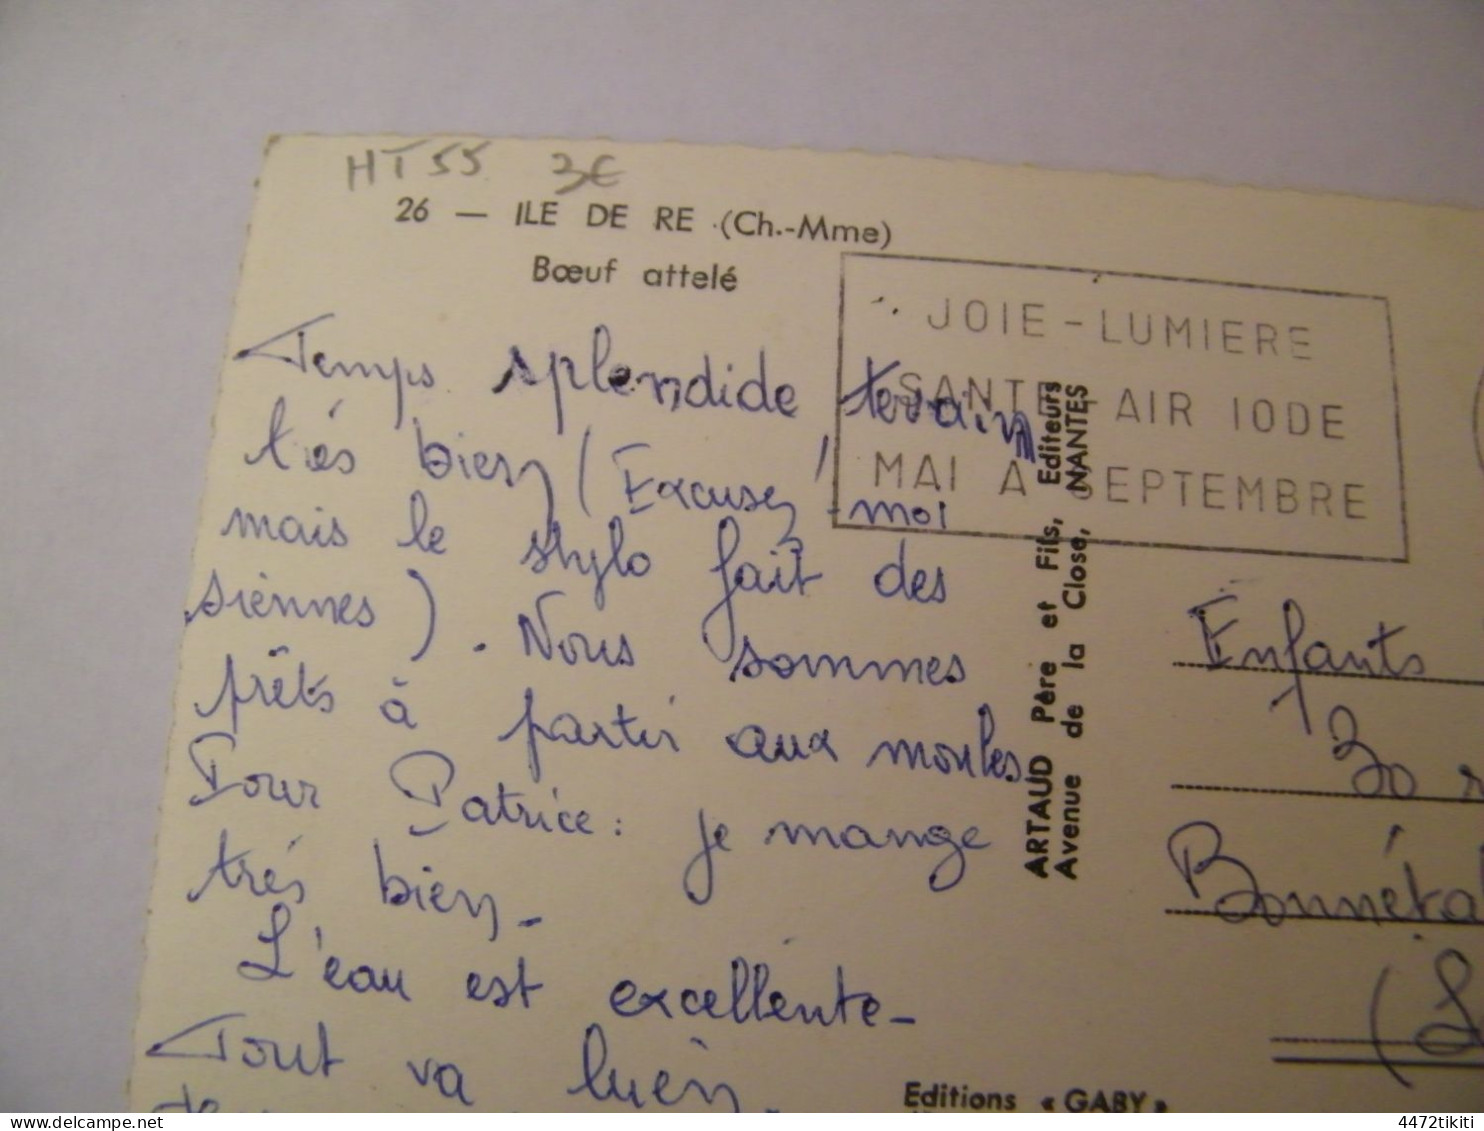 HT 55 3€
26 — ILE DE RE (Ch.-Mme)
Bœuf attelé
JOIE - LUMIERE
SANTE - AIR IODE
MAI A SEPTEMBRE
Temps splendide terrain
très bien (Excusez-moi
mais le stylo fait des
siennes). Nous sommes
prêts à partir aux moules
Pour Patrice : je mange
très bien.
L'eau est excellente.
Tout va bien.
ARTAUD Père et Fils, Editeurs
Avenue de la Close, NANTES
Enfants
30
Editions « GABY »
delcampe.net
4472tikiti